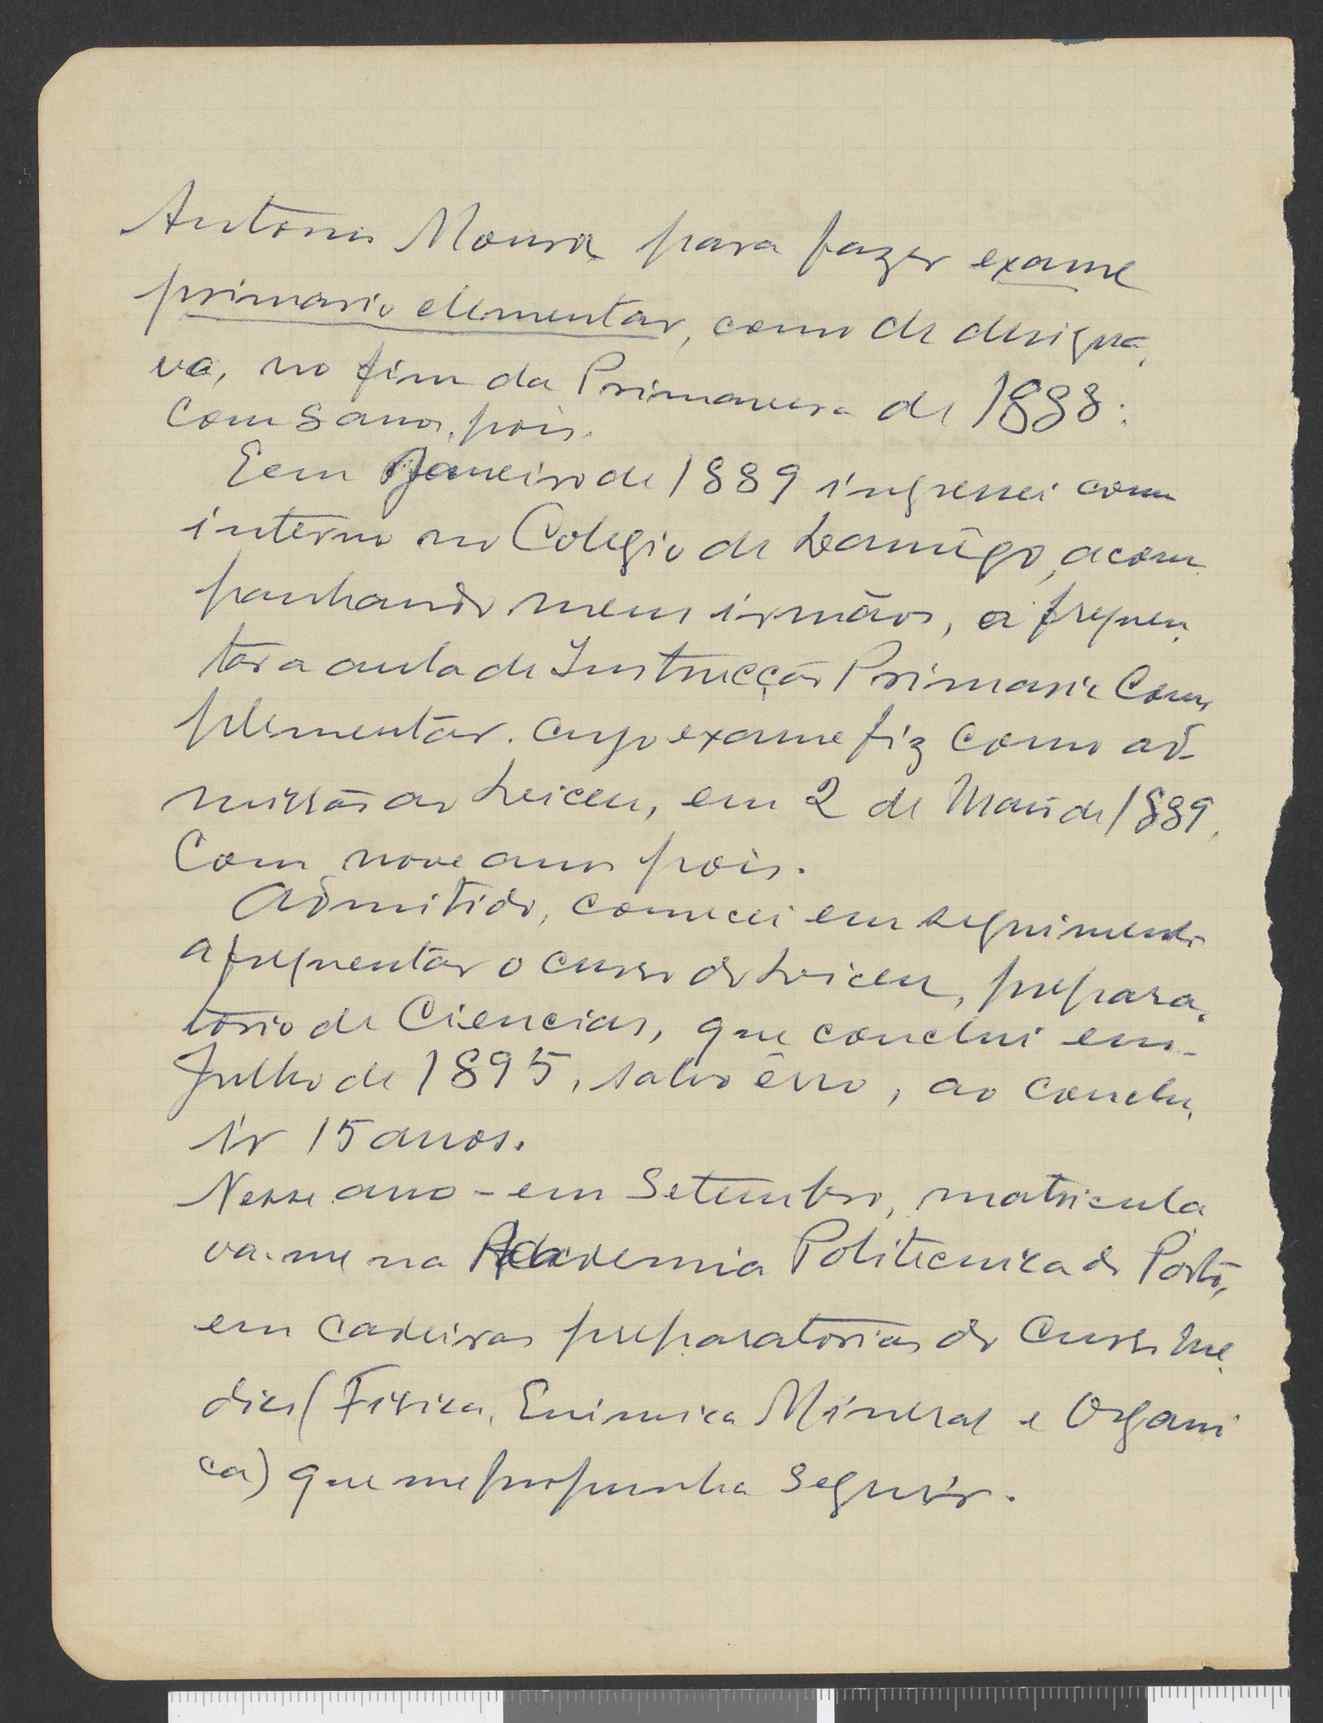 Antonio Moura para fazer exame
primario elementar, como se designa
va, no fim da Primavera de 1888:
Com 8 anos, pois.
E em Janeiro de 1889 ingressei como
interno no Colegio de Lamêgo, acom
panhando meus irmãos, a frequen
tar a aula de Instrucção Primaria Com
plementar. cujo exame fiz como ad-
missão ao Liceu, em 2 de Maio de 1889,
Com nove anos pois.
Admitido, comecei em seguimento
a frequentar o curso do Liceu, prepara
torio de Ciencias, que conclui em
Julho de 1895, salvo êrro, ao conclu
ir 15 anos.
Nesse ano - em Setembro, matricula
va-me na Academia Politecnica do Porto,
em cadeiras preparatorias do Curso Me
dico (Fisica, Quimica Mineral e Organi
ca) que me propunha seguir.